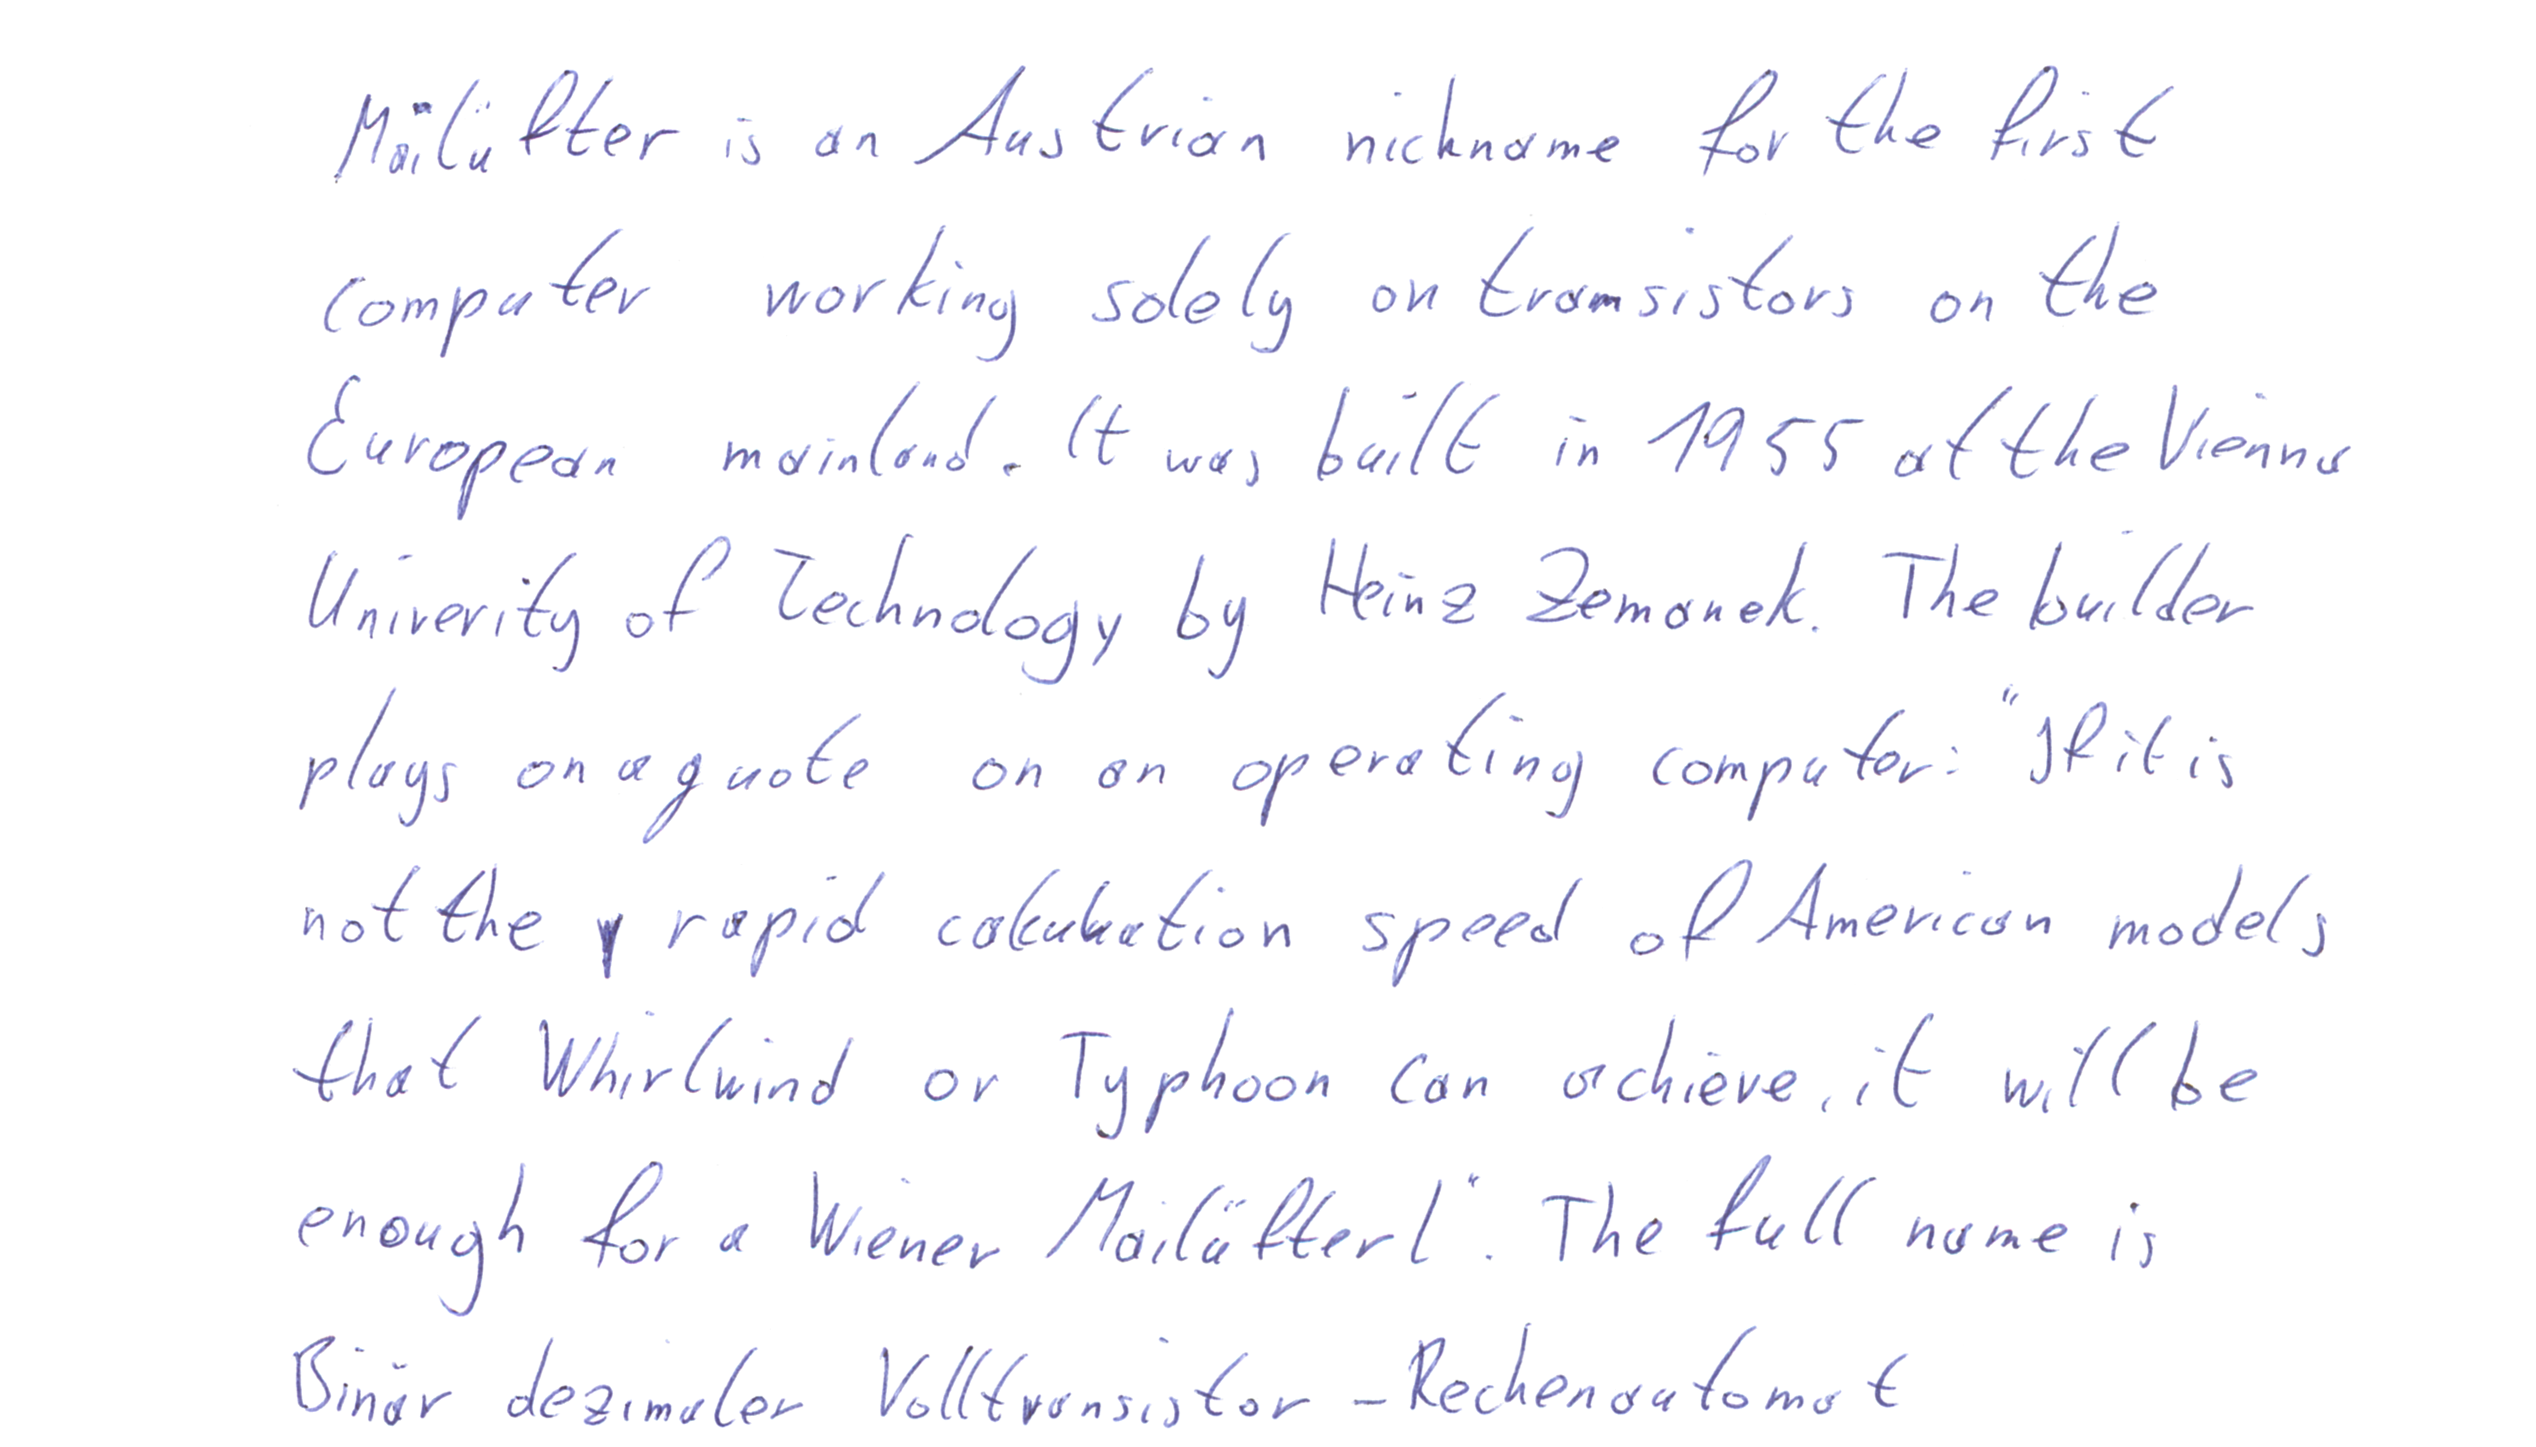 Mailüfter is an Austrian nickname for the first
computer working solely on transistors on the
European mainland. It was built in 1955 at the Vienna
Univerity of Technology by Heinz Zemanek. The builder
plays on a quote on an operating computer: "If it is
not the rapid calculation speed of American models
that Whirlwind or Typhoon can achieve, it will be
enough for a Wiener Mailüfterl". The full name is
Binär dezimaler Volltransistor - Rechenautomat